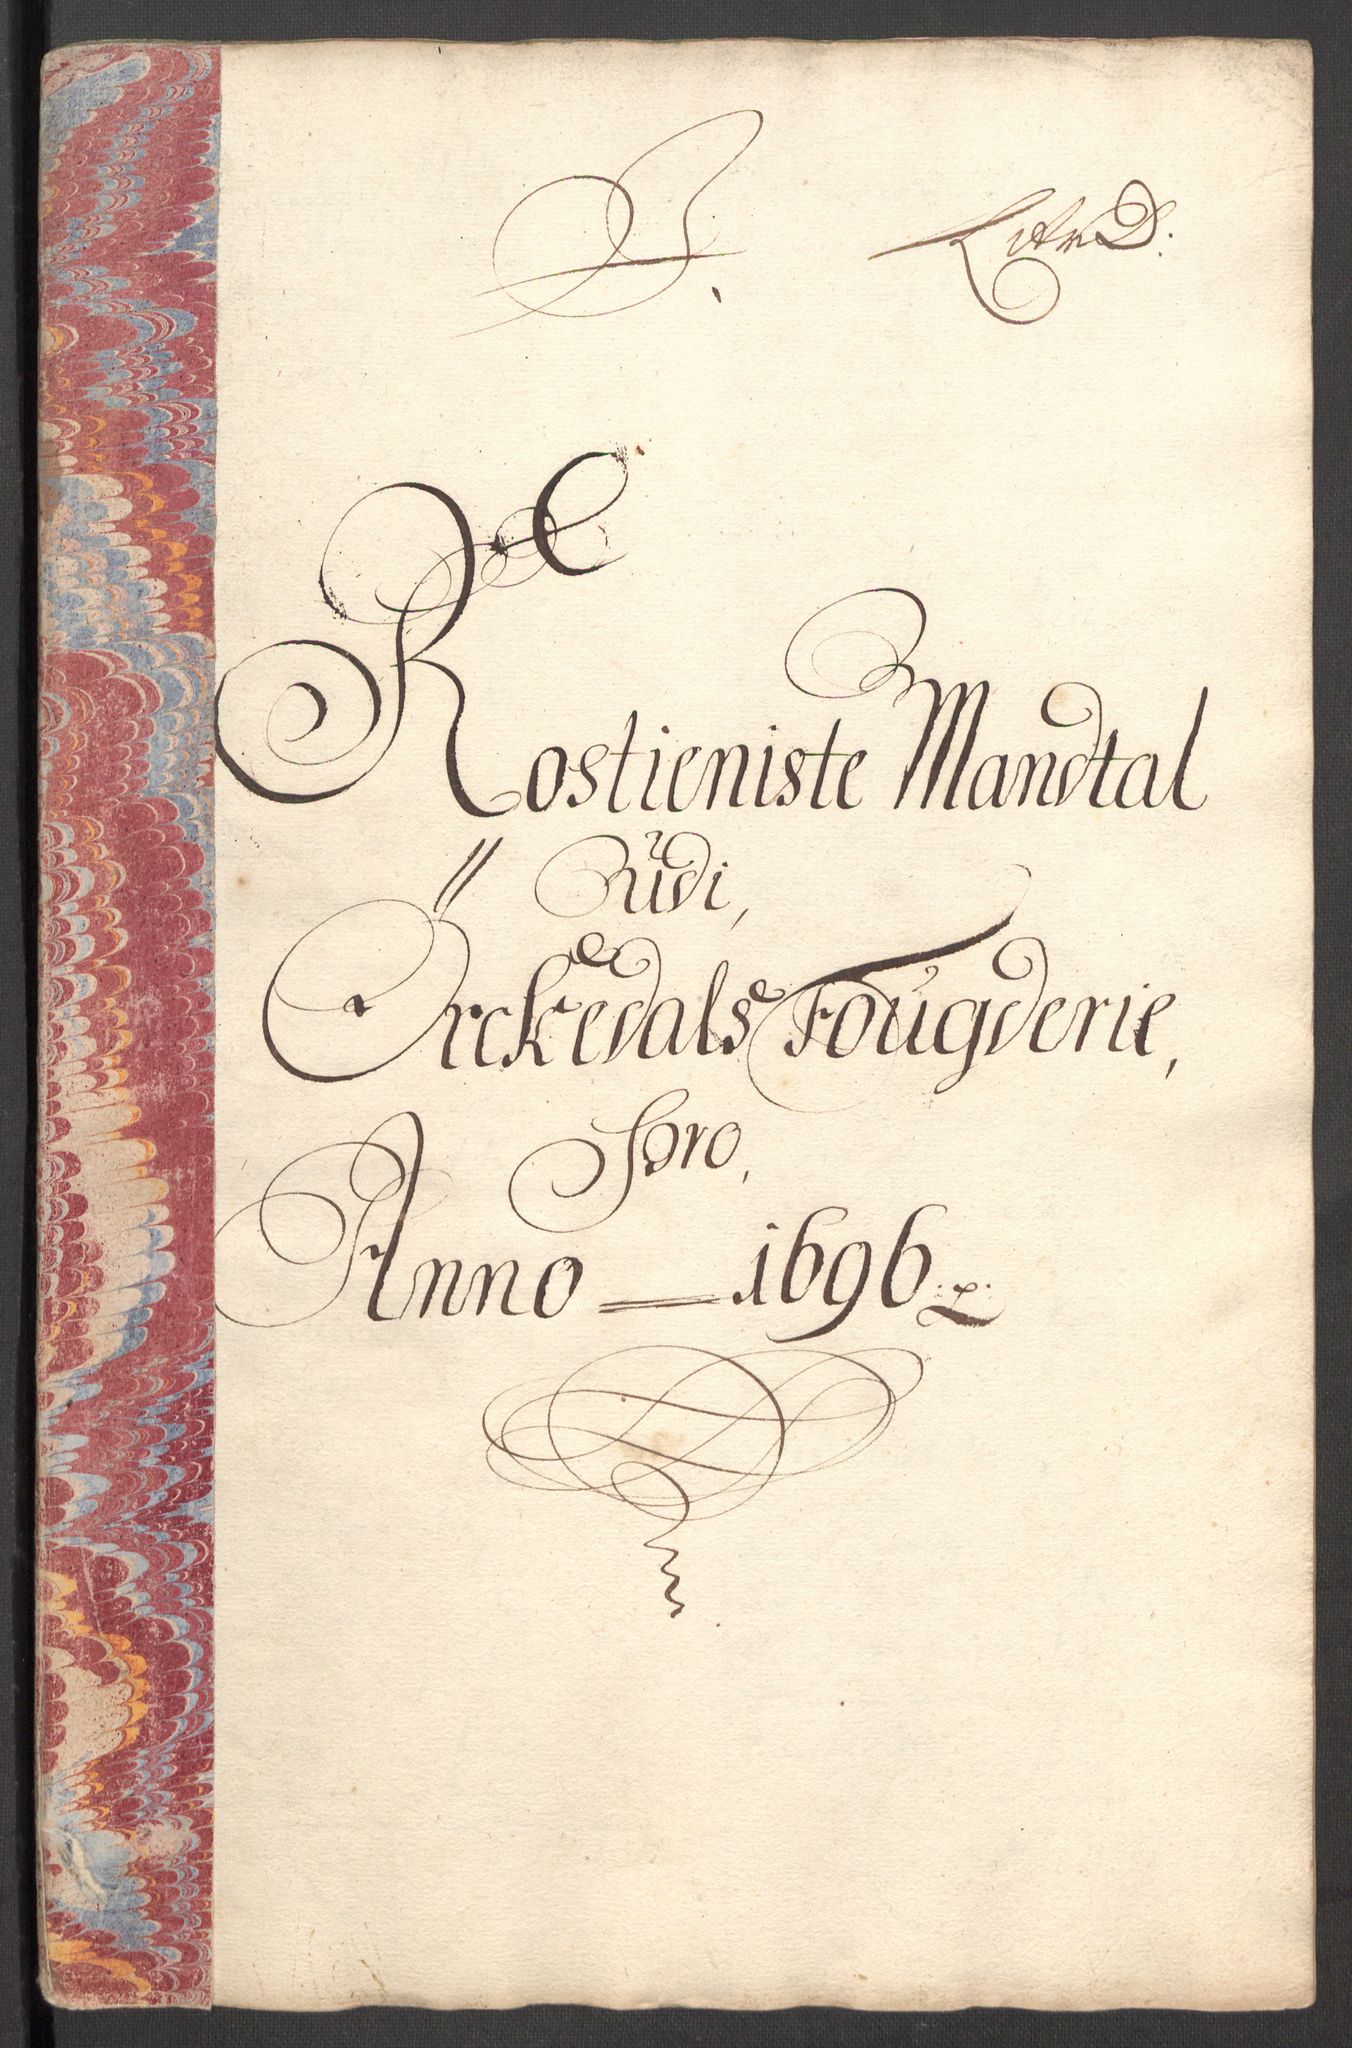 Litr D.
Rostieniste Mandtal
Udi,
Örckedals Fougderie,
pro,
Anno 1696